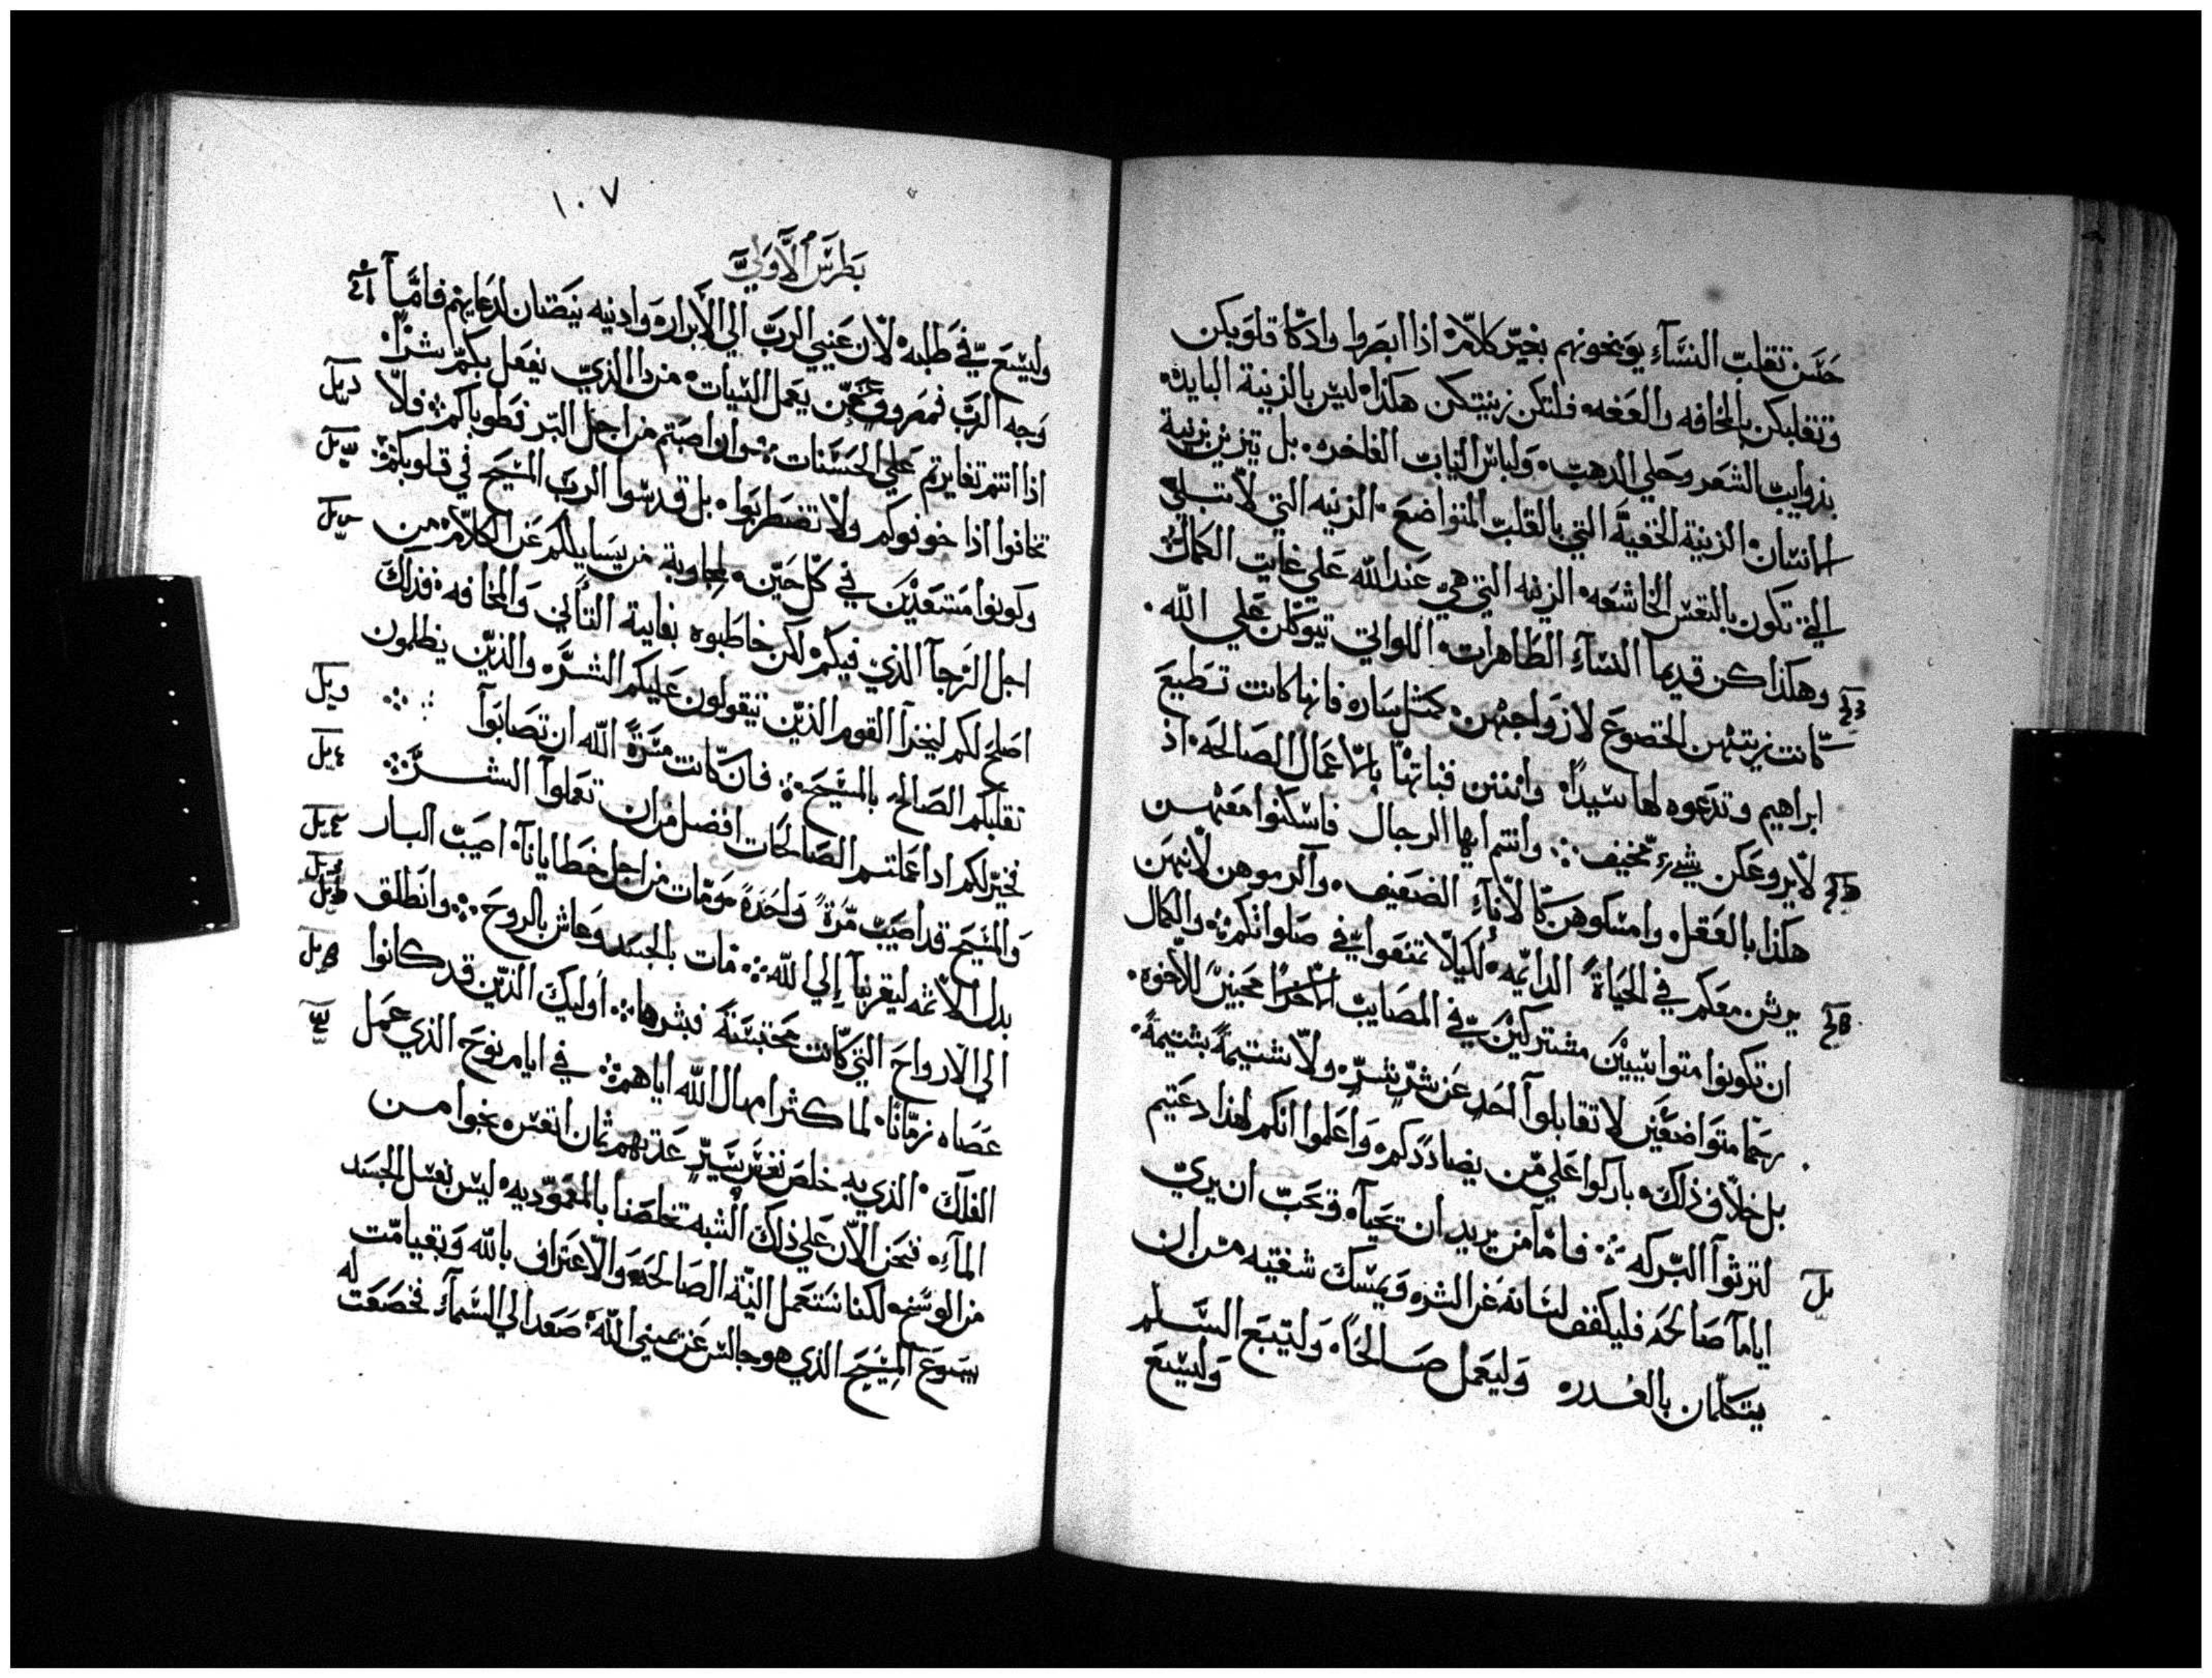 حسن تقلب النسآء يونخونهم بغير كلام اذا ابصروا وادكا قلوبكن
وتقلبكن بالمخافه والعفه فلتكن زينتكن هكذا ليس بالزينة البايده
بذوايب الشعر وحلي الدهب ولباس التياب الفاخره بل تيزين بزينة
الانسان الزينة الخفية التي بالقلب المتواضع الزينه التي لا تبلي
التي تكون بالنفس الخاشعه الزينه التي هي عند الله علي غايت الكمال
وهكذا كن قديما النسآء الطاهرات اللواتي تيوكلن علي الله
كانت زينتهن الخضوع لازواجهن كمثل ساره فانها كانت تطيع
ابراهيم وتدعوه لها سيدا وانتن فبناتها بالاعمال الصالحه اذ
لا يروعكن شيء مخيف وانتم ايها الرجال فاسكنوا معهن
هكذا بالعقل وامسكوهن كالانآء الضعيف وآكرموهن لانهن
يرثن معكم في الحياة الدايمه لكيلا تمنعوا في صلواتكم والكمال
ان تكونوا متواتيين مشتركين في المصايب محبين للاخوه
رحما متواضعين لا تقابلوا احد عن شر بشر ولا شتيمة بشتيمة
بل خلاف ذلك باركوا علي من يضاددكم واعلموا انكم لهذا دعيتم
لترثوا البركه فاما من يريد ان تحيآ وتحب ان يري
اياما صالحه فليكفف لسانه عن الشر ويمسك شفتيه من ان
يتكلمان بالغدر وليعمل صالحا وليتبع السلم
وليسع
١٠٧
بطرس الاولي
وليسع في طلبه لان عيني الرب الي الابرار وادنيه ينصتان لدعايهم فامآ
وجه الرب فمصروف عمن يعمل السيات من دا الذي يفعل بكم شرا
اذا انتم تغايرتم علي الحسنات وان اصبتم من اجل البر فطوباكم فلا
تخافوا اذا خوفوكم ولا تضطربوا بل قدسوا الرب المسيح في قلوبكم
وكونوا مستعدين في كل حين لمجاوبة من يسايلكم عن الكلام من
اجل الرجآ الذي فيكم لكن خاطبوه بغاية التاني والمخافه فذلك
اصلح لكم ليخزآ القوم الذين يتقولون عليكم الشر والذين يظلمون
تقلبكم الصالح بالمسيح فان كانت مسرة الله ان تصابوآ
فخير لكم اذا عملتم الصالحات افضل من ان تعملوآ الشر
والمسيح قد اصيب مرة واحدة ومات من اجل خطايانآ اصيب البار
بدل الاثمه ليقربنآ الي الله مات بالجسد وعاش بالروح وانطلق
الي الارواح التي كانت محتبسة فبشرها اوليك الذين قد كانوا
عصاه زمانا لما كثر امهال الله اياهم في ايام نوح الذي عمل
الفلك الذي به خلص نفر يسير عدتهم ثمان انفس نجوا من
المآء فنحن الان علي ذلك الشبه تخلصنا بالمعموديه ليس بغسل الجسد
من الوسخ لكنا نستعمل النية الصالحه والاعتراف بالله وبقيامت
يسوع المسيح الذي هو جالس عن يمين الله صعد الي السمآء فخضعت
له